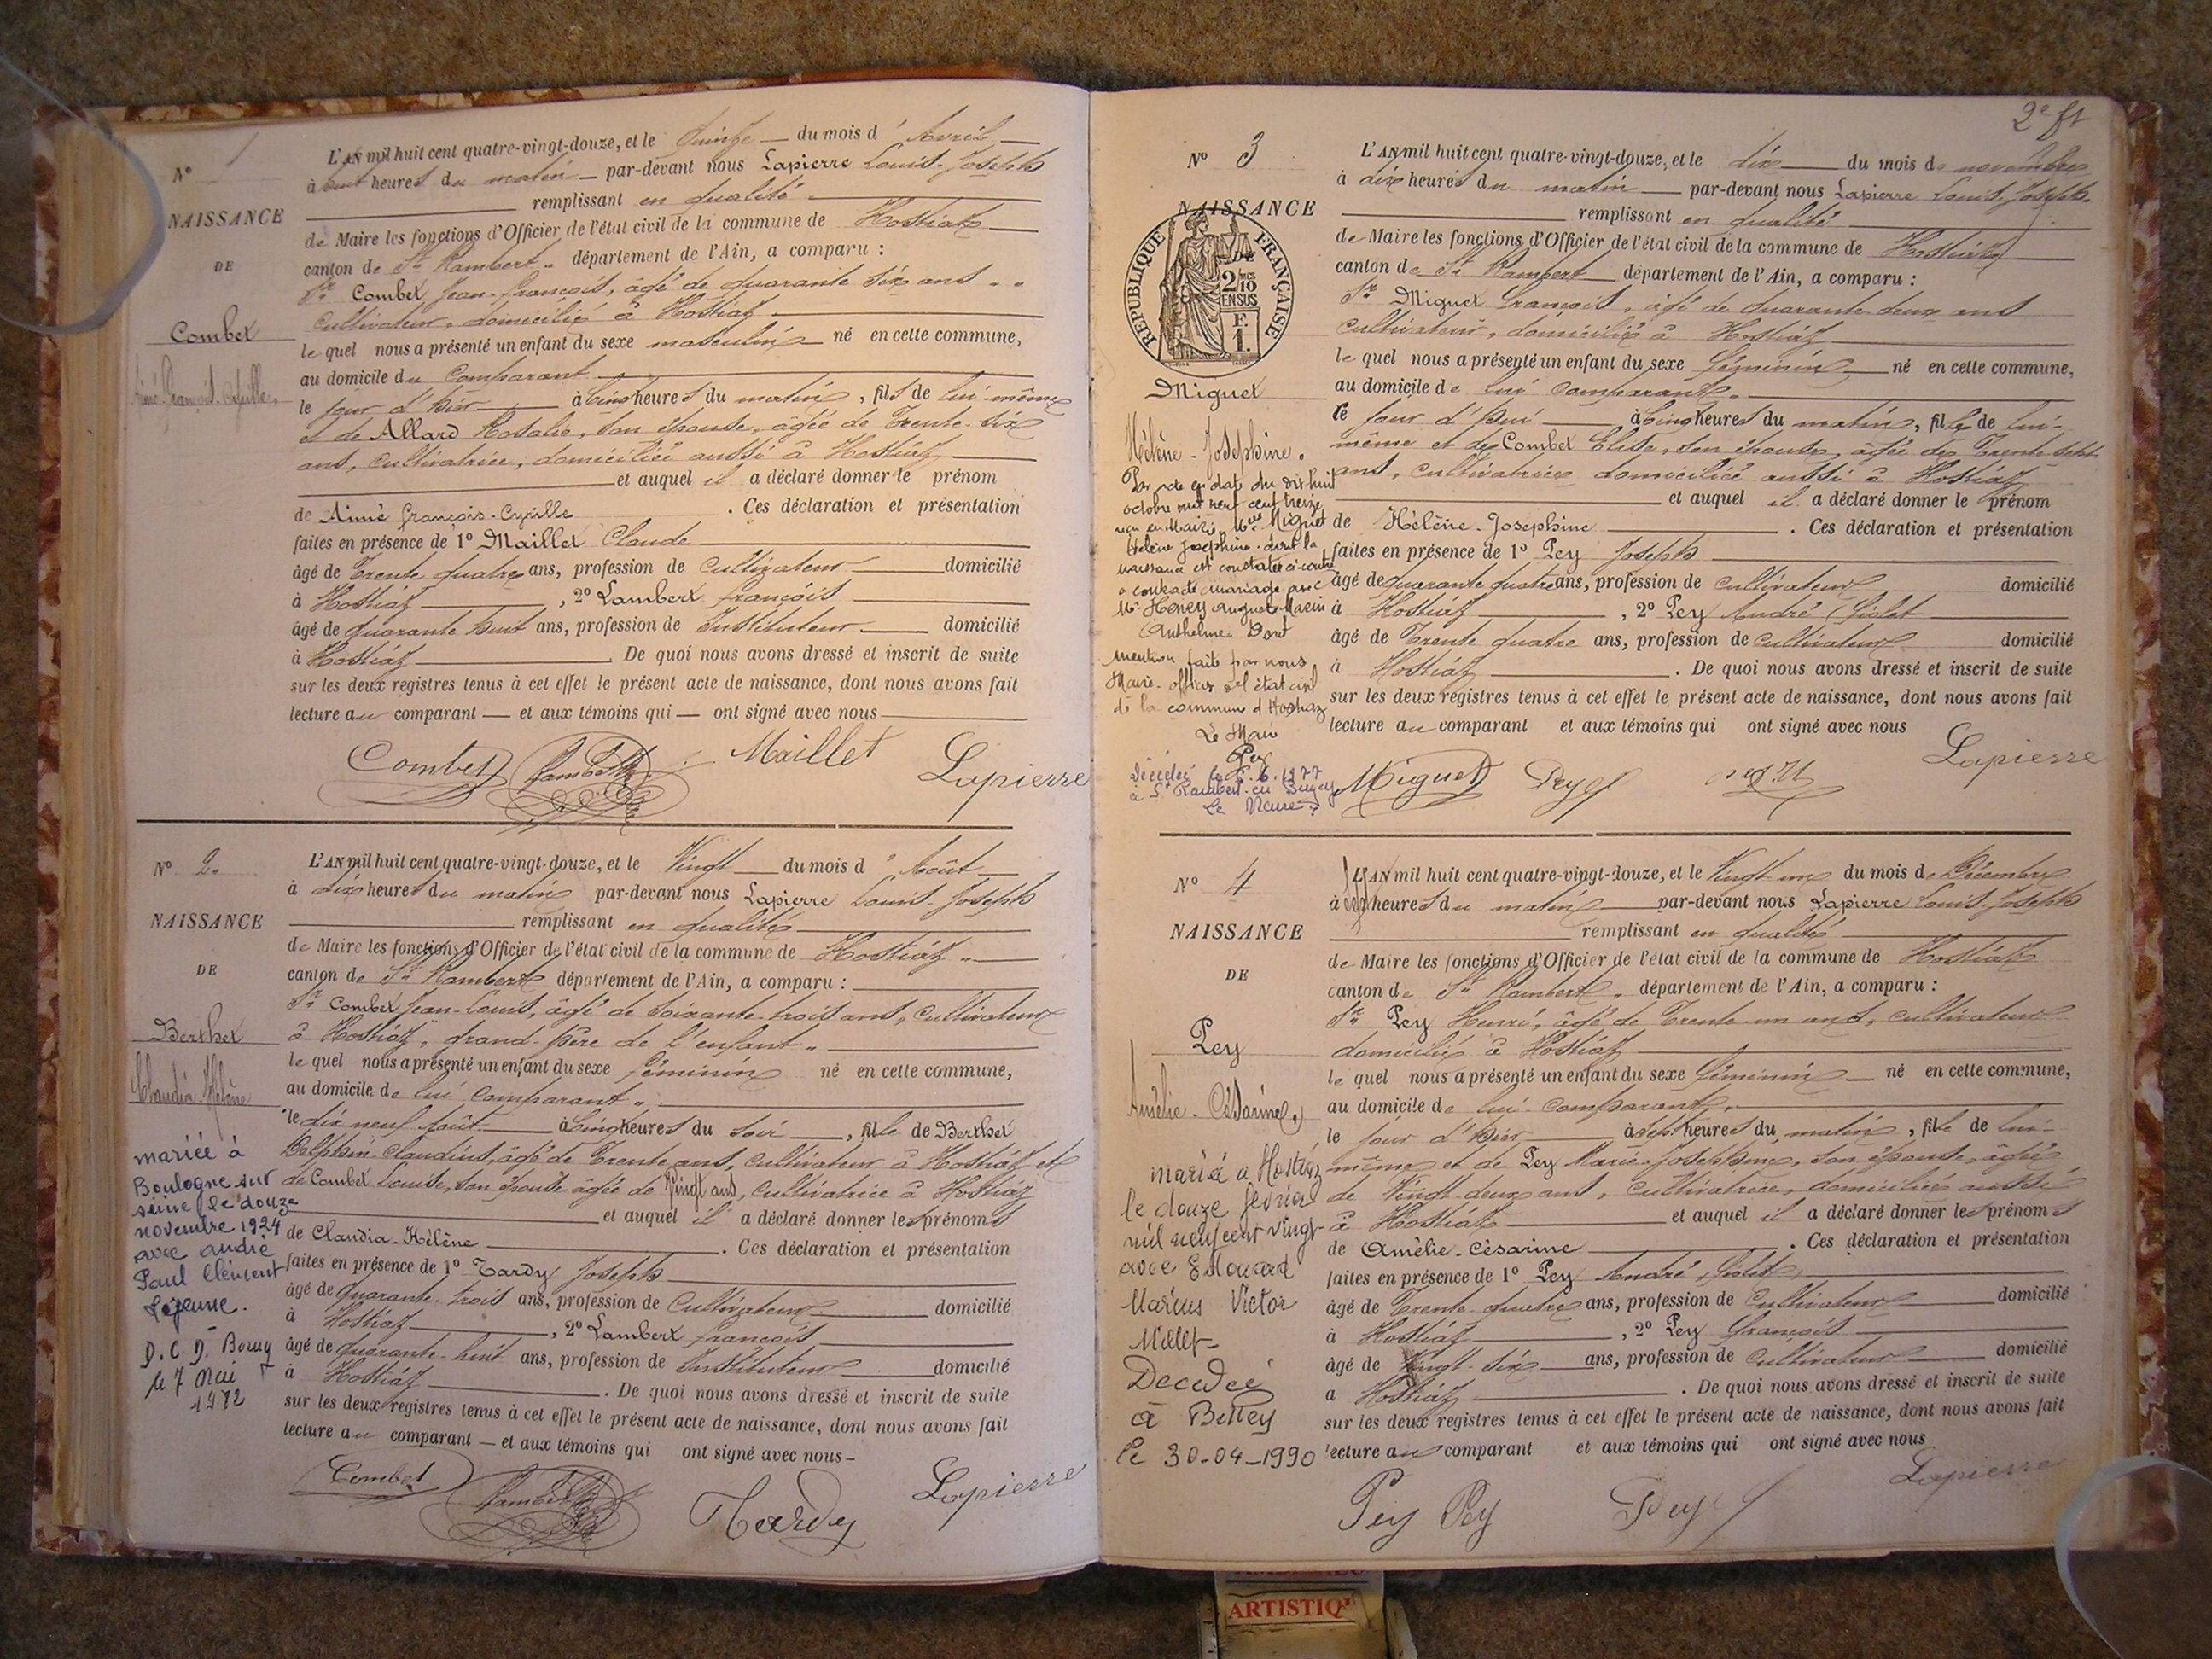 N° 1
NAISSANCE
DE
Combet
Aimé François-Cyrille
L'AN mil huit cent quatre-vingt-douze, et le Quinze du mois d' Avril
à huit heures du matin par-devant nous Lapierre Louis-Joseph
remplissant en qualité
de Maire les fonctions d'Officier de l'état civil de la commune de Hostiaz
canton de St Rambert département de l'Ain, a comparu :
Sr Combet Jean-François, âgé de quarante six ans
cultivateur, domicilié à Hostiaz
le quel nous a présenté un enfant du sexe masculin né en cette commune,
au domicile du Comparant
le jour d'hier à Cinq heures du matin, fils de lui-même
et de Allard Rosalie, son épouse, âgée de Trente-six
ans, cultivatrice, domiciliée aussi à Hostiaz
et auquel il a déclaré donner le prénom
de Aimé François-Cyrille . Ces déclaration et présentation
faites en présence de 1° Maillet Claude
âgé de Trente quatre ans, profession de Cultivateur domicilié
à Hostiaz , 2° Lambert françois
âgé de quarante huit ans, profession de Instituteur domicilié
à Hostiaz . De quoi nous avons dressé et inscrit de suite
sur les deux registres tenus à cet effet le présent acte de naissance, dont nous avons fait
lecture au comparant — et aux témoins qui — ont signé avec nous
Combet Lambert Maillet Lapierre
N° 2.
NAISSANCE
DE
Berthet
Claudia-Hélène
mariée à
Boulogne sur
seine le douze
novembre 1924
avec andré
Paul Clément
Lejeune.
D.C.D. Bourg
le 7 Mai
1972
L'AN mil huit cent quatre-vingt-douze, et le Vingt du mois d' Août
à dix heures du matin par-devant nous Lapierre Louis-Joseph
remplissant en qualité
de Maire les fonctions d'Officier de l'état civil de la commune de Hostiaz
canton de St Rambert département de l'Ain, a comparu :
Sr Combet Jean-Louis, âgé de Soixante-trois ans, Cultivateur
à Hostiaz, grand-père de l'enfant
le quel nous a présenté un enfant du sexe féminin né en cette commune,
au domicile de lui Comparant
le dix neuf Août à Cinq heures du soir, fille de Berthet
Delphin Claudius, âgé de Trente ans, cultivateur à Hostiaz et
de Combet Louise, son épouse âgée de Vingt ans, cultivatrice à Hostiaz
et auquel il a déclaré donner les prénoms
de Claudia-Hélène . Ces déclaration et présentation
faites en présence de 1° Tardy Joseph
âgé de quarante-trois ans, profession de Cultivateur domicilié
à Hostiaz , 2° Lambert françois
âgé de quarante-huit ans, profession de Instituteur domicilié
à Hostiaz . De quoi nous avons dressé et inscrit de suite
sur les deux registres tenus à cet effet le présent acte de naissance, dont nous avons fait
lecture au comparant — et aux témoins qui ont signé avec nous
Combet Lambert Tardy Lapierre
2e ft
N° 3
NAISSANCE
DE
RÉPUBLIQUE FRANÇAISE
2/10 EN SUS
F. 1.
Miguet
Hélène-Joséphine.
Par acte en date du dix huit
octobre mil neuf cent treize
reçu en Mairie Melle Miguet
Hélène Joséphine dont la
naissance est constatée ci-contre
a contracté mariage avec
Mr Honey Auguste Marin
Anthelme Dont
mention faite par nous
Maire-officier de l'état civil
de la commune d'Hostiaz
Le Maire
Pey
Décédée le 5.6.1977
à St Rambert-en-Bugey
Le Maire
L'AN mil huit cent quatre-vingt-douze, et le dix du mois de novembre
à dix heures du matin par-devant nous Lapierre Louis-Joseph
remplissant en qualité
de Maire les fonctions d'Officier de l'état civil de la commune de Hostiaz
canton de St Rambert département de l'Ain, a comparu :
Sr Miguet François, âgé de quarante-deux ans
cultivateur, domicilié à Hostiaz
le quel nous a présenté un enfant du sexe féminin né en cette commune,
au domicile de lui comparant
le jour d'hui à Cinq heures du matin, fille de lui-
même et de Combet Elisa, son épouse, âgée de Trente sept
ans, cultivatrice domiciliée aussi à Hostiaz
et auquel il a déclaré donner le prénom
de Hélène-Joséphine . Ces déclaration et présentation
faites en présence de 1° Pey Joseph
âgé de quarante quatre ans, profession de cultivateur domicilié
à Hostiaz , 2° Pey André
âgé de Trente quatre ans, profession de cultivateur domicilié
à Hostiaz . De quoi nous avons dressé et inscrit de suite
sur les deux registres tenus à cet effet le présent acte de naissance, dont nous avons fait
lecture au comparant et aux témoins qui ont signé avec nous
Miguet Pey Lapierre
N° 4
NAISSANCE
DE
Pey
Amélie-Césarine,
marié a Hostiaz
le douze février
mil neuf cent vingt
avec Edouard
Marius Victor
Millet
Decedeé
à Belley
le 30-04-1990
L'AN mil huit cent quatre-vingt-douze, et le Vingt-un du mois de Décembre
à sept heures du matin par-devant nous Lapierre Louis-Joseph
remplissant en qualité
de Maire les fonctions d'Officier de l'état civil de la commune de Hostiaz
canton de St Rambert département de l'Ain, a comparu :
Sr Pey Henri, âgé de Trente-un ans, cultivateur
domicilié à Hostiaz
le quel nous a présenté un enfant du sexe féminin né en cette commune,
au domicile de lui comparant
le jour d'hier à sept heures du matin, fille de lui-
même et de Pey Marie-Joséphine, son épouse, âgée
de Vingt-deux ans, cultivatrice, domiciliée aussi
à Hostiaz et auquel il a déclaré donner les prénoms
de Amélie-Césarine . Ces déclaration et présentation
faites en présence de 1° Pey André
âgé de Trente-quatre ans, profession de Cultivateur domicilié
à Hostiaz , 2° Pey François
âgé de Vingt-six ans, profession de Cultivateur domicilié
a Hostiaz . De quoi nous avons dressé et inscrit de suite
sur les deux registres tenus à cet effet le présent acte de naissance, dont nous avons fait
lecture au comparant et aux témoins qui ont signé avec nous
Pey Pey Pey Lapierre
ARTISTIQ